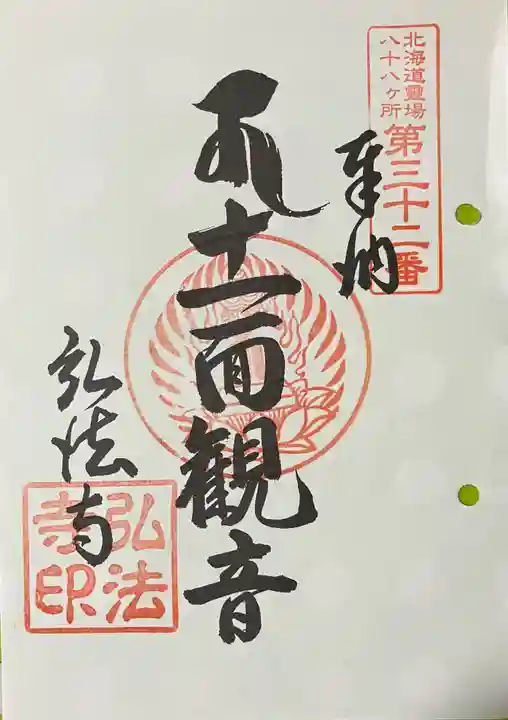 北海道霊場
八十八ヶ所
第三十二番
奉納
十一面観音
弘法寺
弘法寺印